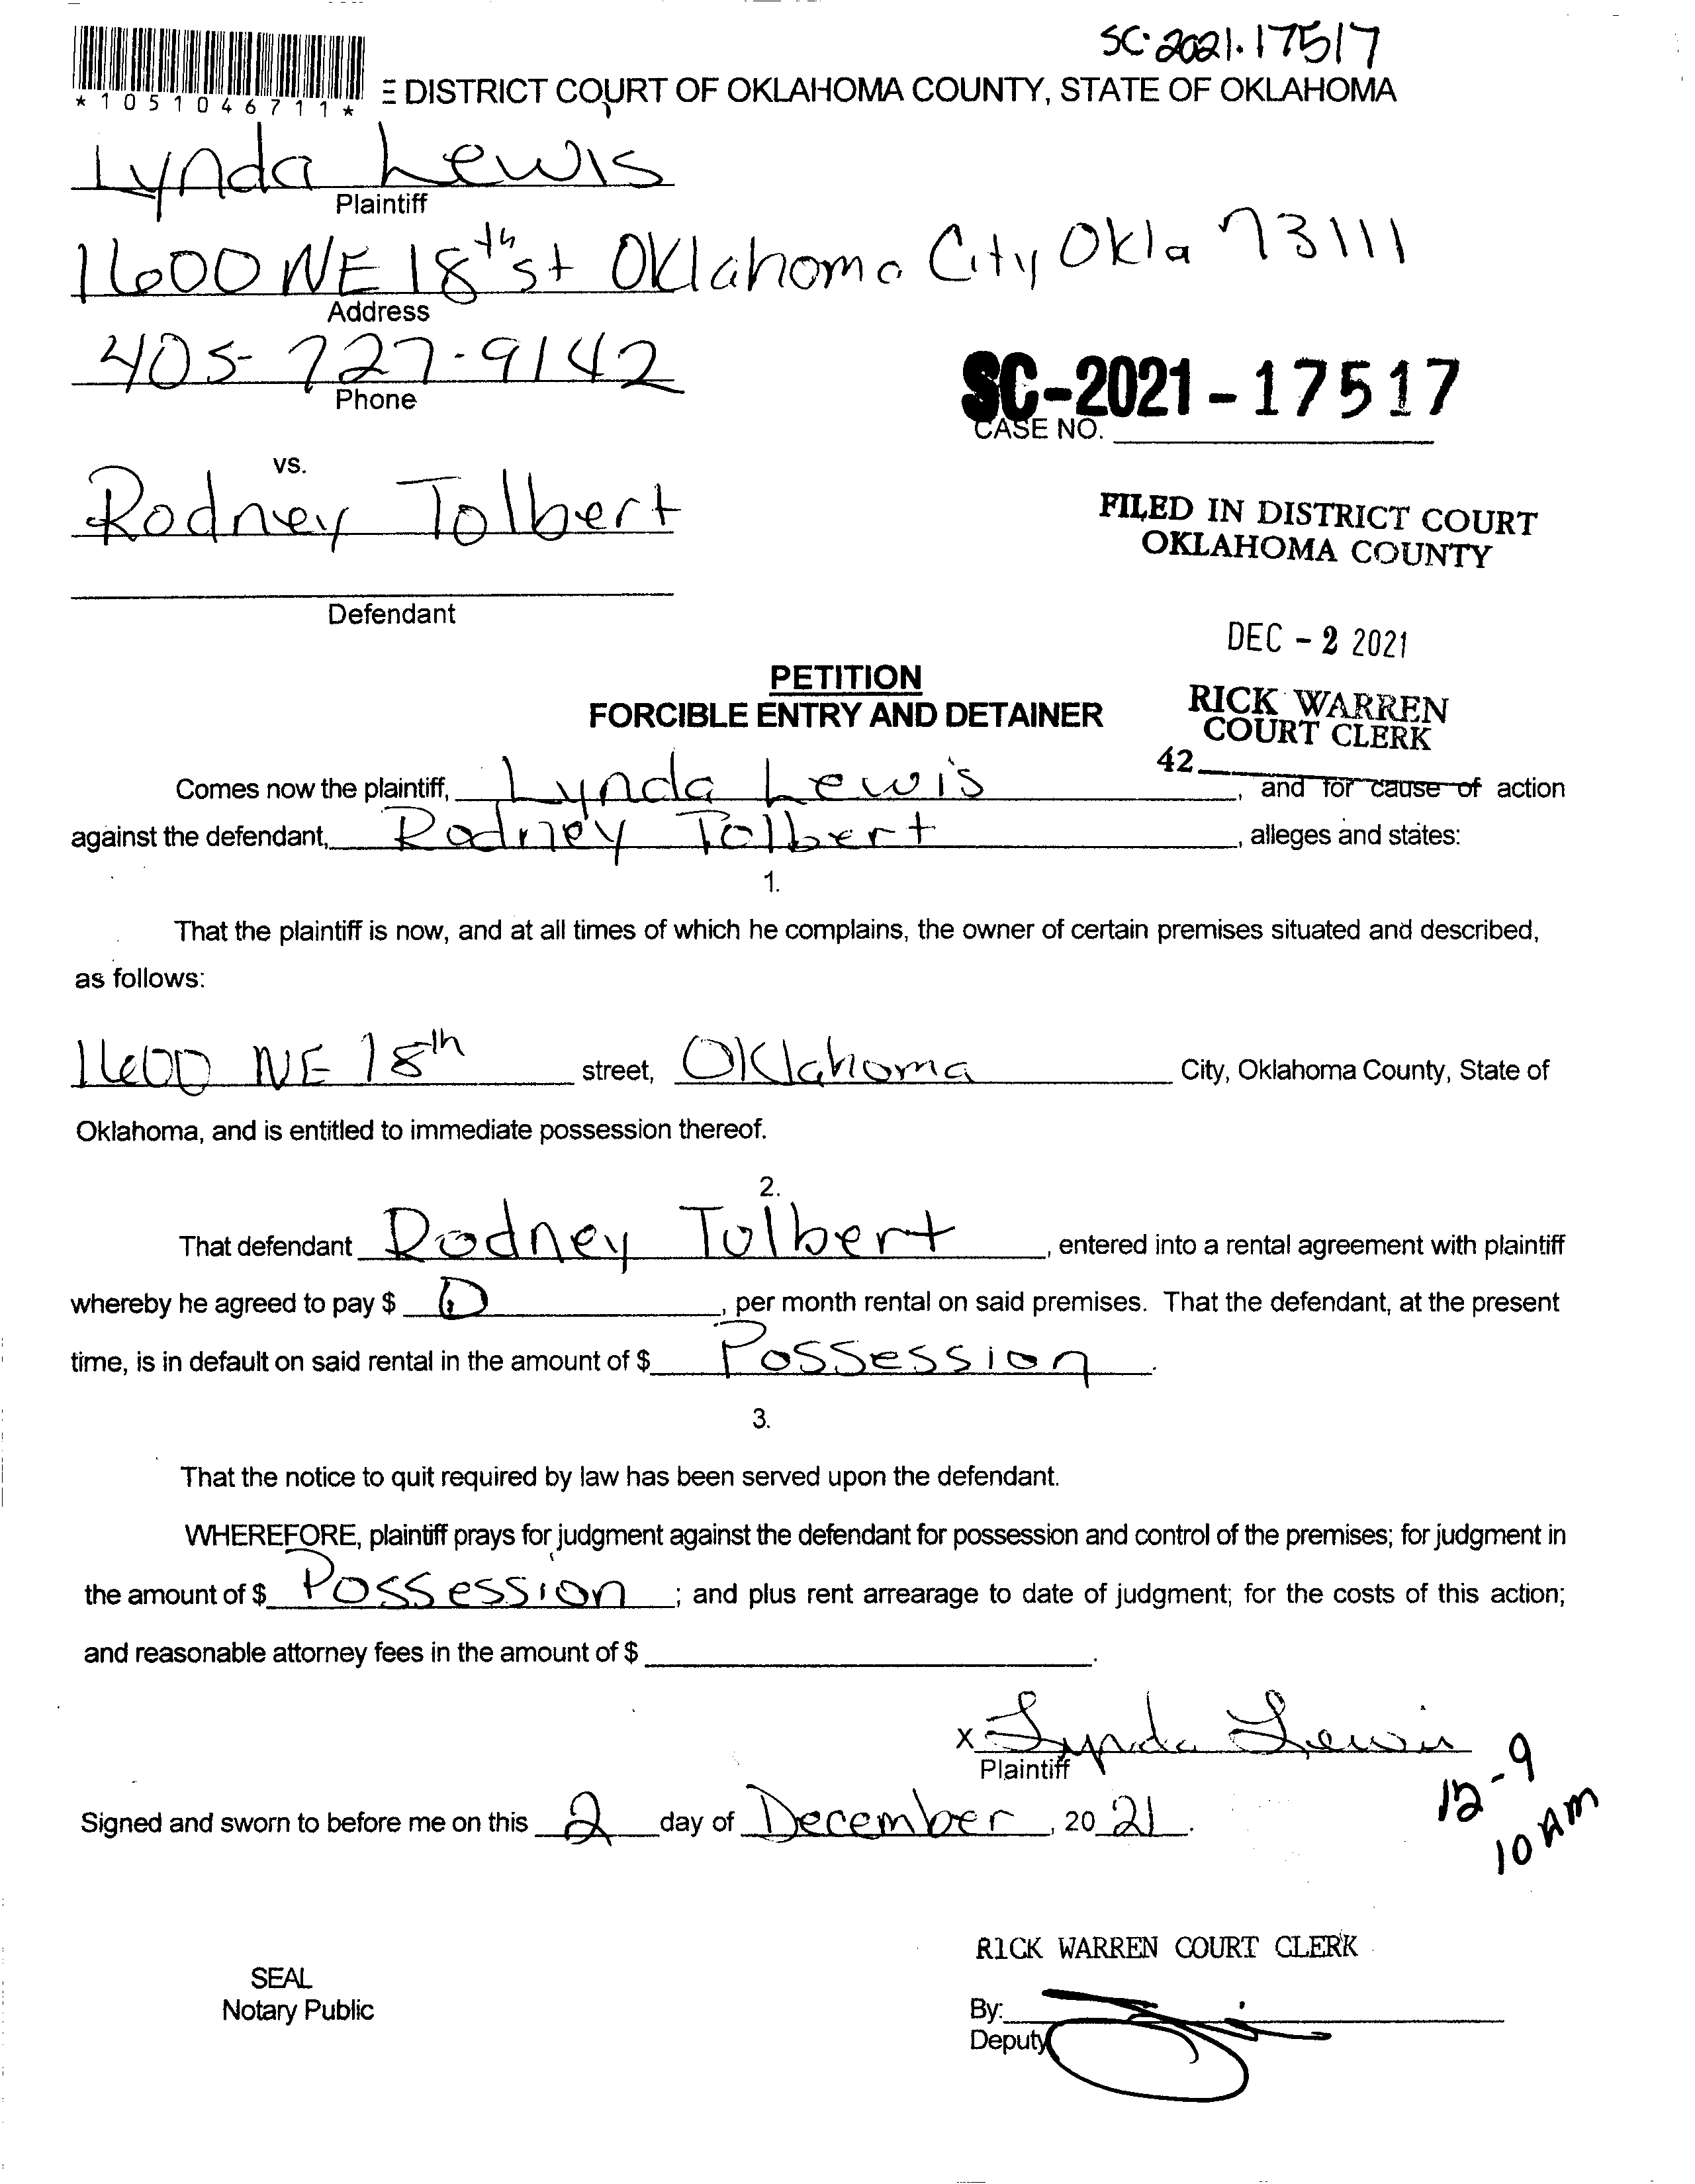 SC-2021-17517
*1051046711*
E DISTRICT COURT OF OKLAHOMA COUNTY, STATE OF OKLAHOMA
Lynda Lewis
Plaintiff
1600 NE 18th st Oklahoma City Okla 73111
Address
405-727-9142
Phone
SC-2021-17517
CASE NO.
vs.
Rodney Tolbert
FILED IN DISTRICT COURT
OKLAHOMA COUNTY
Defendant
DEC - 2 2021
PETITION
FORCIBLE ENTRY AND DETAINER
RICK WARREN
COURT CLERK
42
Comes now the plaintiff, Lynda Lewis, and for cause of action
against the defendant, Rodney Tolbert, alleges and states:
1.
That the plaintiff is now, and at all times of which he complains, the owner of certain premises situated and described,
as follows:
1600 NE 18th street, Oklahoma City, Oklahoma County, State of
Oklahoma, and is entitled to immediate possession thereof.
2.
That defendant Rodney Tolbert, entered into a rental agreement with plaintiff
whereby he agreed to pay $ 0, per month rental on said premises. That the defendant, at the present
time, is in default on said rental in the amount of $ Possession.
3.
That the notice to quit required by law has been served upon the defendant.
WHEREFORE, plaintiff prays for judgment against the defendant for possession and control of the premises; for judgment in
the amount of $ Possession; and plus rent arrearage to date of judgment; for the costs of this action;
and reasonable attorney fees in the amount of $ .
X Lynda Lewis
Plaintiff
12-9
10 AM
Signed and sworn to before me on this 2 day of December, 20 21.
RICK WARREN COURT CLERK
SEAL
Notary Public
By:
Deputy